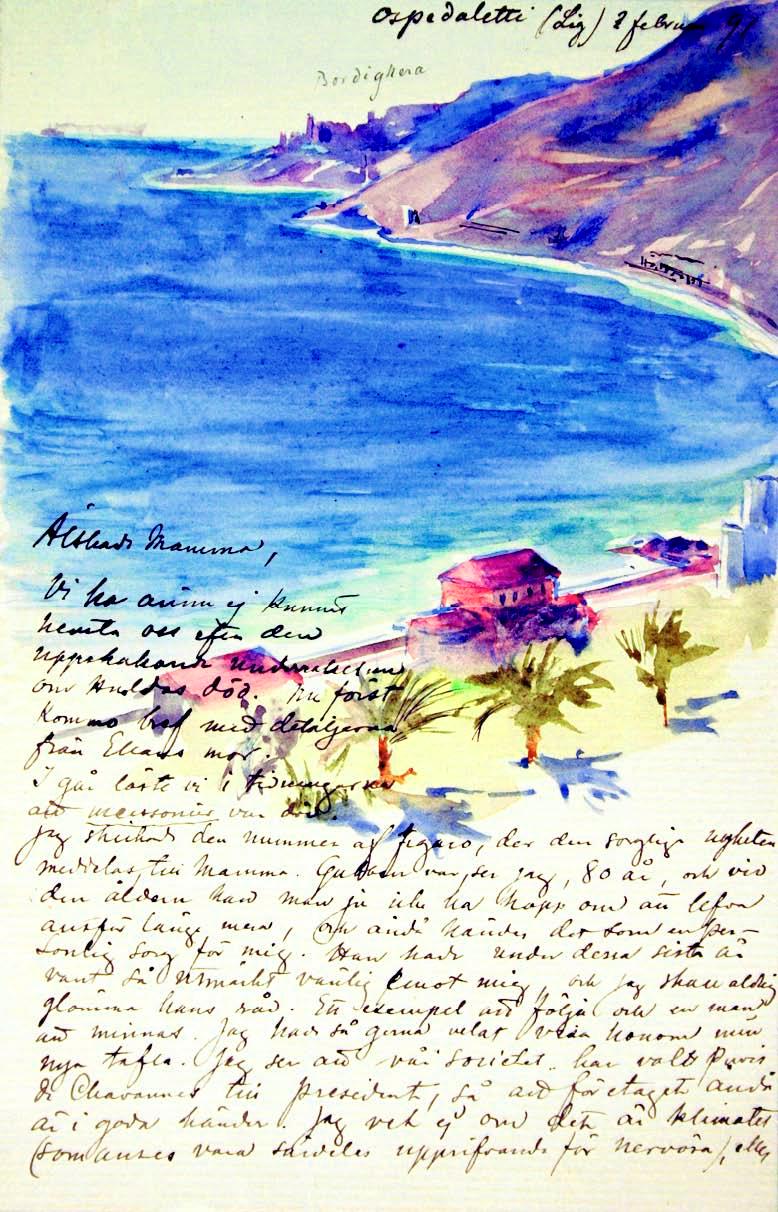 Ospedaletti (Lig) 2 februari 91
Bordighera
Älskade Mamma,
Vi ha ännu ej kunnat
hemta oss efter den
uppskakande underrättelsen
om Huldas död. Nu först
kommo bref med detaljerna
från Ellans mor.
I går läste vi i tidningarna
att Meissonier var död.
Jag skickade den nummer af Figaro, der den sorgliga nyheten
meddelas, till Mamma. Gubben var, ser jag, 80 år, och vid
den åldern kan man ju icke ha hopp om att lefva
länge mera, och ändå händer det som en per-
sonlig sorg för mig. Han hade under dessa sista år
varit så utmärkt vänlig emot mig, och jag skall aldrig
glömma hans råd. Ett exempel att följa och en man
att minnas. Jag hade så gerna velat visa honom min
nya tafla. Jag ser att vår societet har valt Puvis
de Chavannes till president, så att företaget ändå
är i goda händer. Jag vet ej om det är klimatet
(som anses vara särdeles upprifvande för nervösa), eller